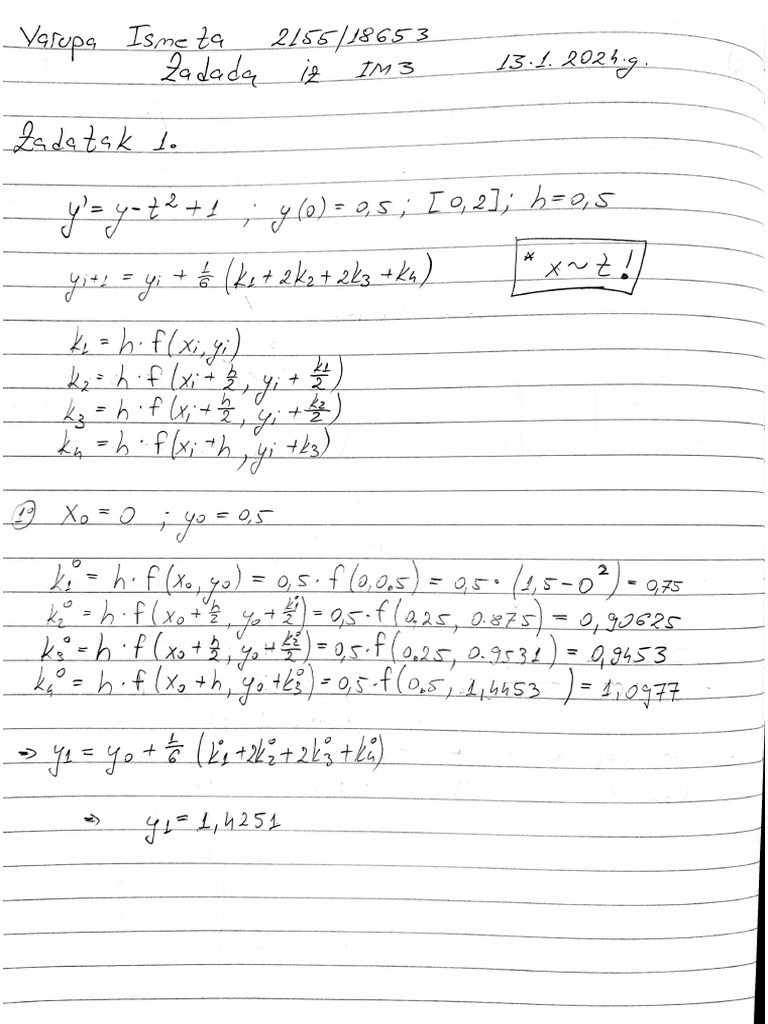 Varupa Ismeta 2155/18653
Zadaća iz IM3 13.1.2024.g.
Zadatak 1.
y' = y - t² + 1 ; y(0) = 0,5 ; [0,2] ; h = 0,5
yi+1 = yi + 1/6 (k1 + 2k2 + 2k3 + k4)
* x ~ t !
k1 = h · f(xi, yi)
k2 = h · f(xi + h/2, yi + k1/2)
k3 = h · f(xi + h/2, yi + k2/2)
k4 = h · f(xi + h, yi + k3)
1° x0 = 0 ; y0 = 0,5
k1° = h · f(x0, y0) = 0,5 · f(0, 0.5) = 0,5 · (1,5 - 0²) = 0,75
k2° = h · f(x0 + h/2, y0 + k1°/2) = 0,5 · f(0.25, 0.875) = 0,90625
k3° = h · f(x0 + h/2, y0 + k2°/2) = 0,5 · f(0.25, 0.9531) = 0,9453
k4° = h · f(x0 + h, y0 + k3°) = 0,5 · f(0.5, 1,4453) = 1,0977
⇒ y1 = y0 + 1/6 (k1° + 2k2° + 2k3° + k4°)
⇒ y1 = 1,4251